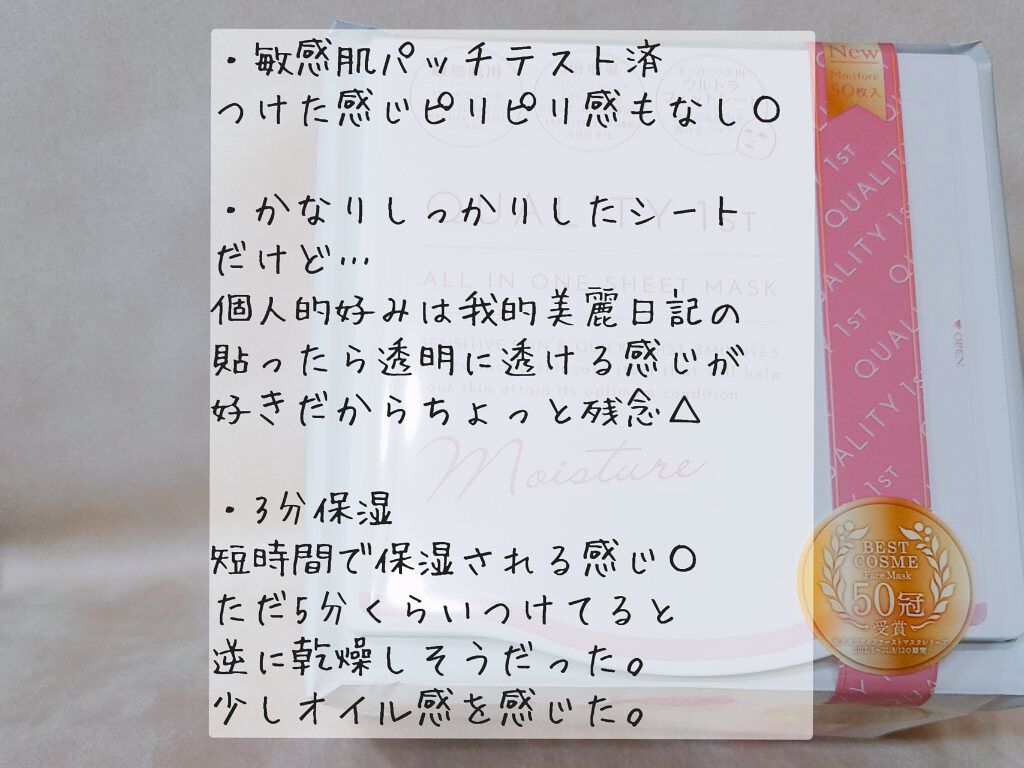 ・敏感肌パッチテスト済
つけた感じピリピリ感もなし〇
・かなりしっかりしたシート
だけど…
個人的好みは我的美麗日記の
貼ったら透明に透ける感じが
好きだからちょっと残念△
・3分保湿
短時間で保湿される感じ〇
ただ5分くらいつけてると
逆に乾燥しそうだった。
少しオイル感を感じた。
QUALITY 1ST
ALL IN ONE SHEET MASK
our skin attain its optimum condition
Moisture
New
Moisture
50枚入
QUALITY 1ST
QUALITY 1ST
QUALITY 1ST
OPEN
BEST
COSME
Face Mask
50冠
受賞